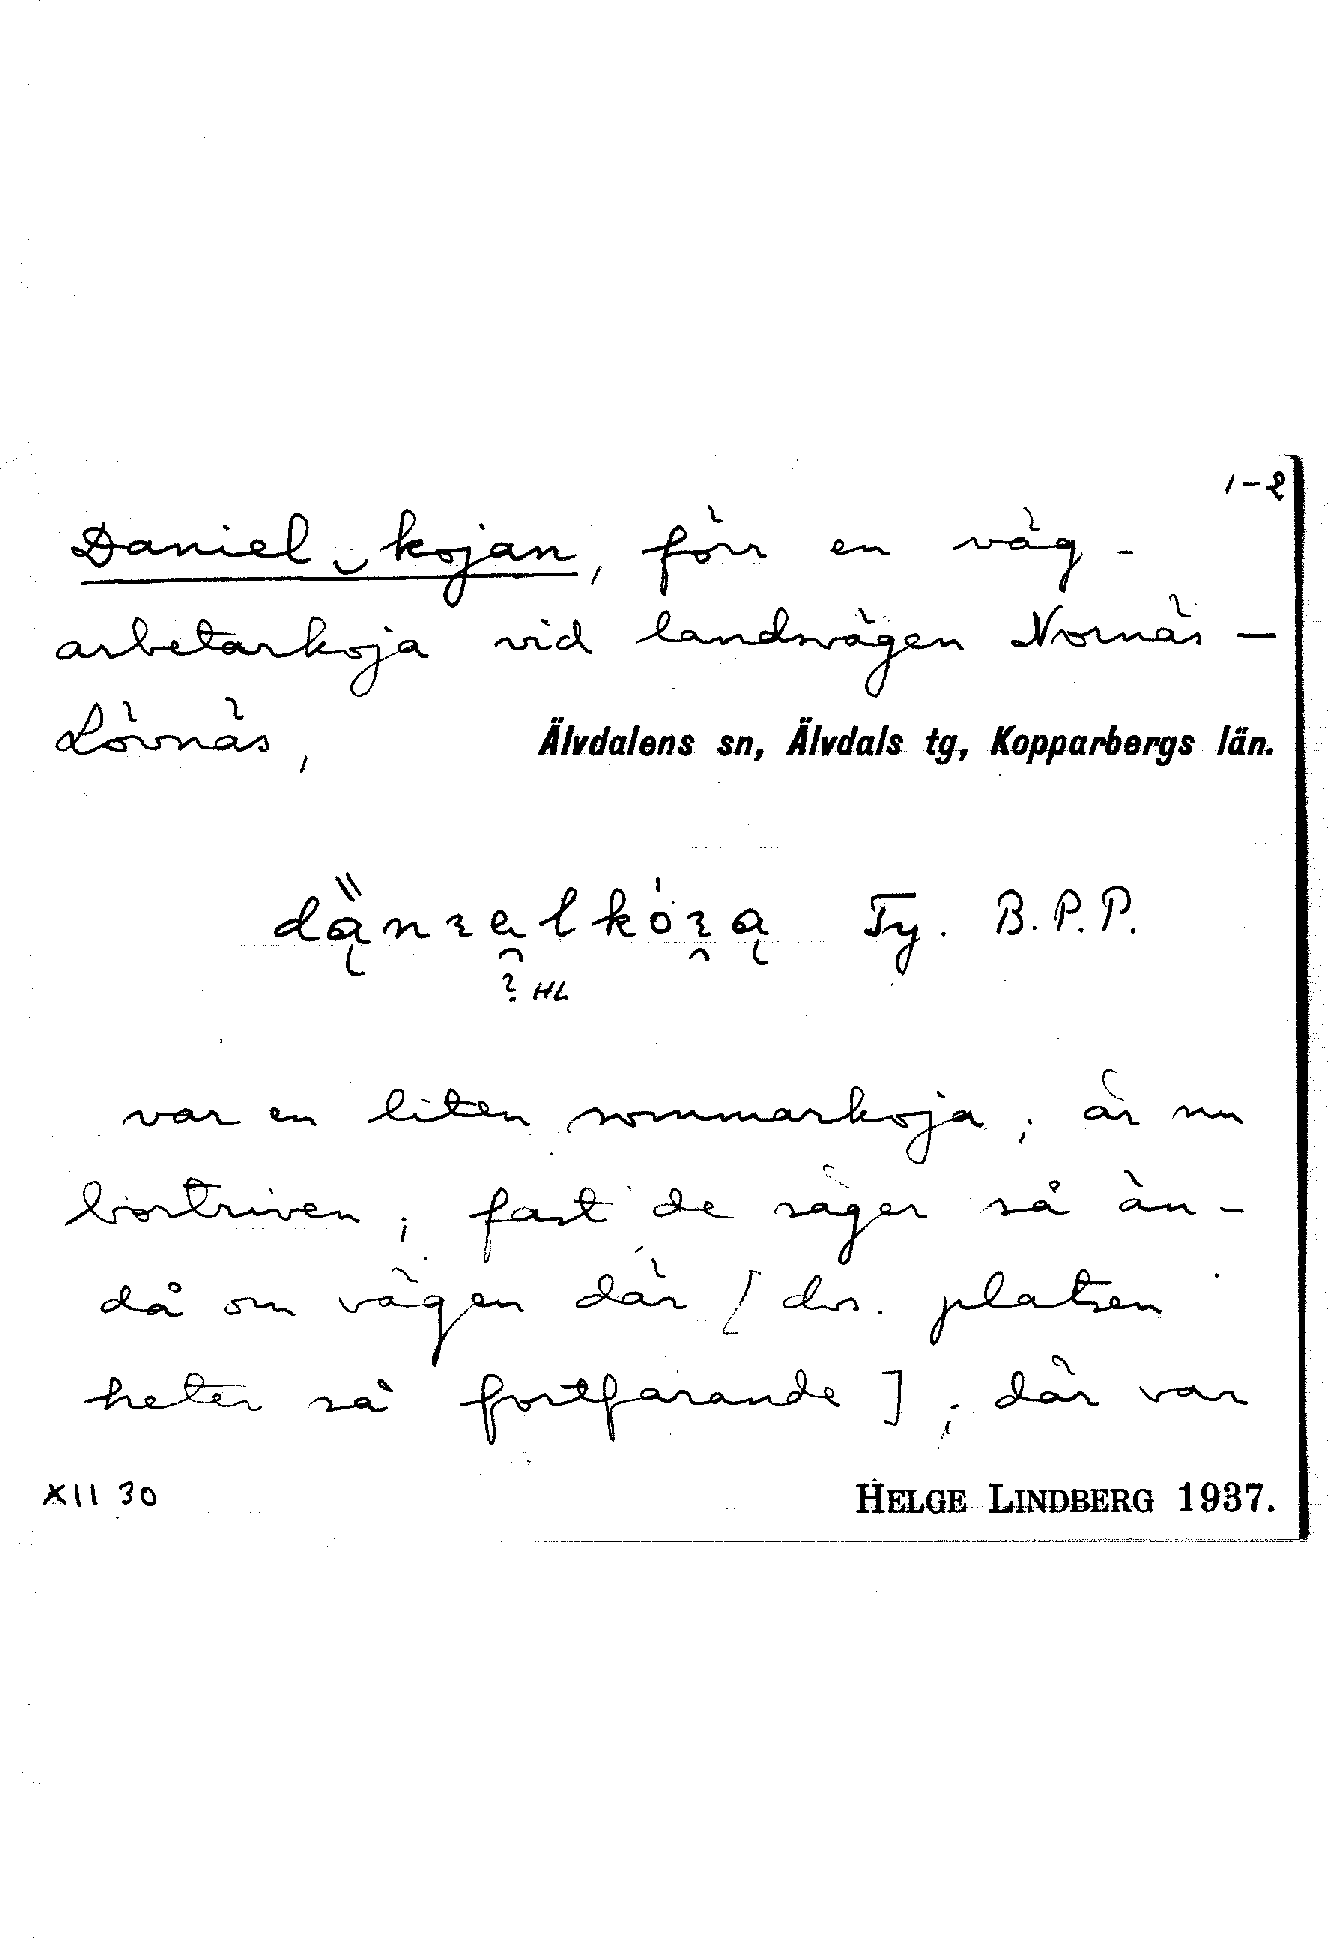 1-2
Daniel kojan, förr en väg-
arbetarkoja vid landsvägen Nornäs –
Lövnäs, Älvdalens sn, Älvdals tg, Kopparbergs län.
Ty. B.P.P.
? HL
var en liten sommarkoja; är nu
bortriven; fast de säger så än-
då om vägen där [dvs. platsen
heter så fortfarande]; där var
XII 30 HELGE LINDBERG 1937.